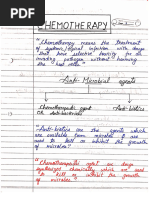 CHEMOTHERAPY
"Chemotherapy means the treatment
of systemic/topical infection with drugs
that have selective toxicity for an
invading pathogen without harming
the host cells."
Anti-Microbial agents
Chemotherapeutic agent
OR Anti-bacterials
Anti-biotics
"Anti-biotics are the agents which
are obtained from microbes & are
used to kill or inhibit the growth
of microbes."
"Chemotherapeutic agent are drugs
chemically which are used
to kill or inhibit the growth
of microbes"